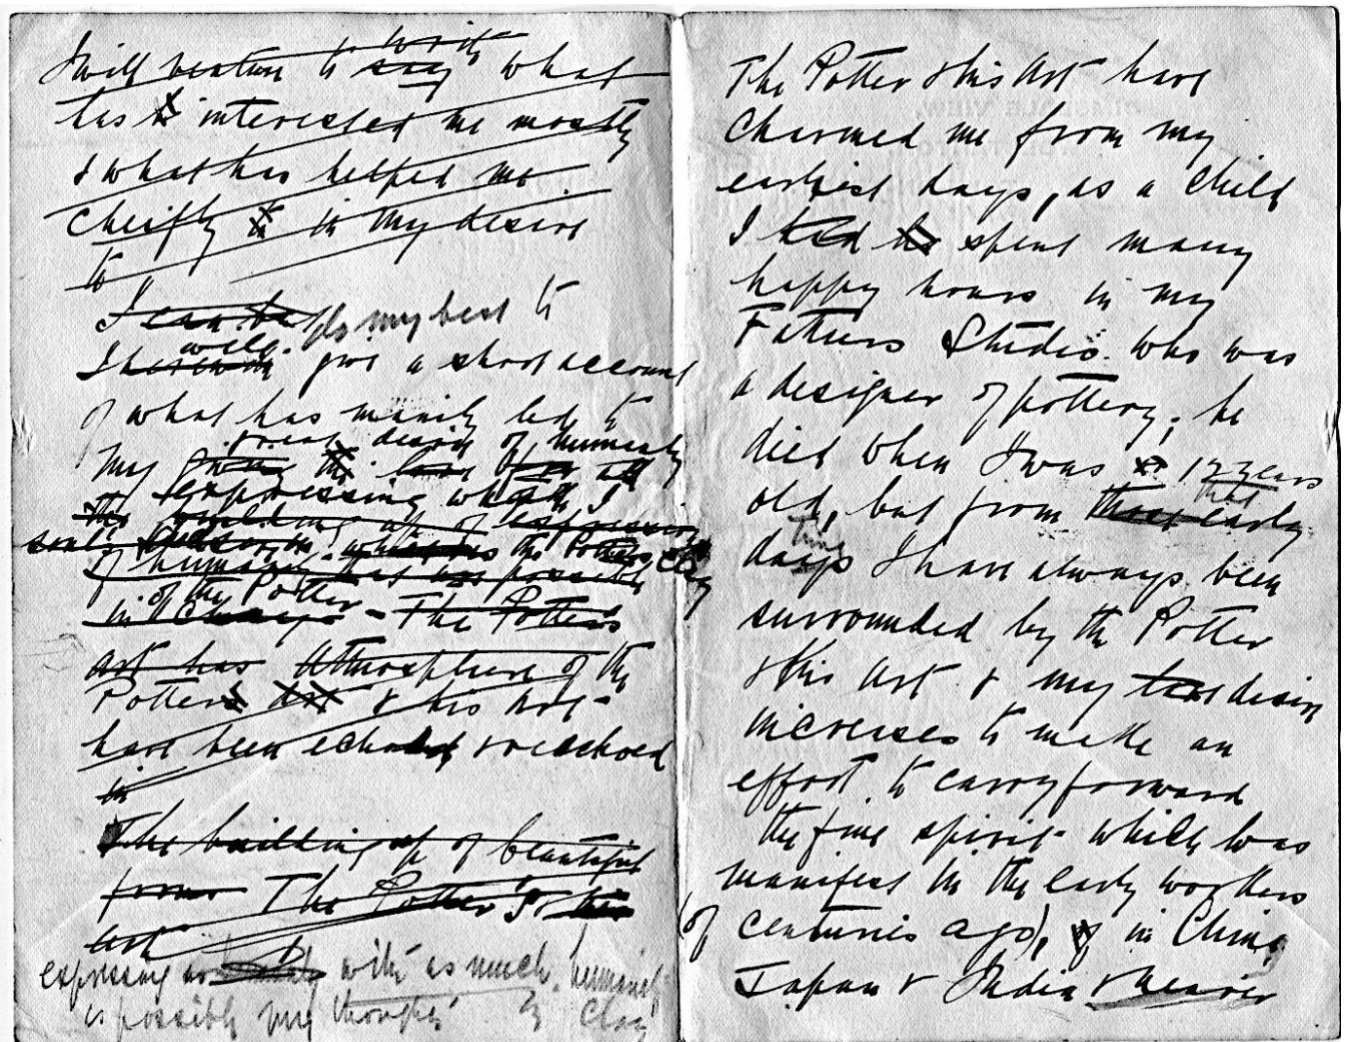 I will venture to say write what
has interested me mostly
& what has helped me
cheifly in my desire
to
I can be do my best to
I herewith will give a short account
of what has mainly led to
great desire of humanly
my love of
expressing what I
the building up of expression
the Potters clay
of humanity has possible
of the Potter
in - The Potter's
art has Atmosphere of the
Potters art & his art
have been echoed & reechoed
in
The building up of beautiful
forms The Potter's or his
art
expressing as with as much humanity
as possible my thoughts in Clay
The Potter & his Art have
Charmed me from my
earliest days, as a Child
I had spent many
happy hours in my
Fathers Studio. who was
a designer of pottery, he
died when I was 12 years
old, but from those early that
days time I have always been
surrounded by the Potter
& his Art & my desire
increases to make an
effort to carry forward
the fine spirit which was
manifest in the early workers
(of centuries ago), of in China
Japan & India & nearer